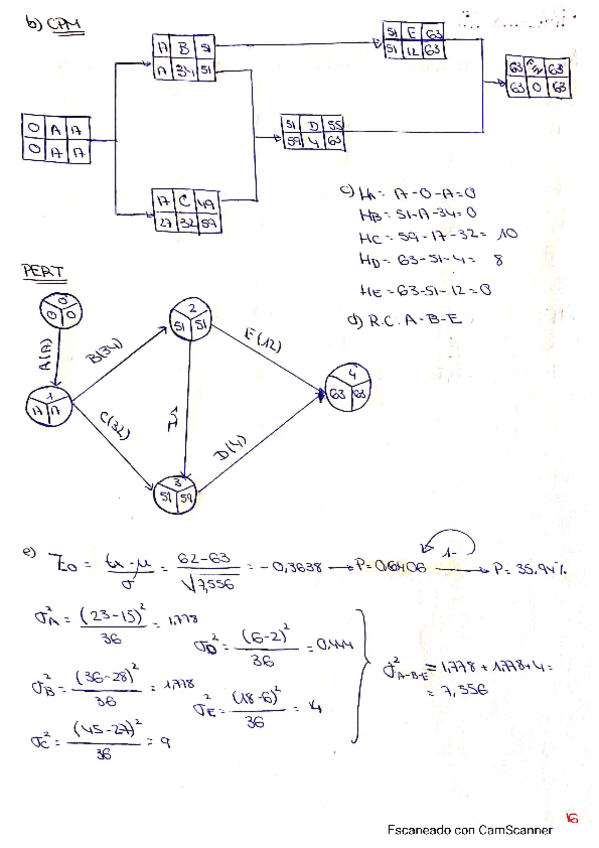 b) CPM
17 B 51
17 34 51
51 E 63
51 12 63
63 Fin 63
63 0 63
0 A 17
0 17 17
51 D 55
59 4 63
17 C 49
27 32 59
c) HA = 17-0-17=0
HB = 51-17-34=0
HC = 59-17-32= 10
HD = 63-51-4= 8
HE = 63-51-12=0
d) R.C. A-B-E
PERT
0
0 0
A(17)
1
17 17
B(34)
C(32)
2
51 51
E(12)
D(4)
3
59 59
4
63 63
e) Zo = (tx-μ)/σ = (62-63)/√7,556 = -0,3638 → P=0,6406 → P= 35.94%
1-
σ²A = (23-15)²/36 = 1,778
σ²D = (6-2)²/36 = 0,444
σ²B = (36-28)²/36 = 1,778
σ²E = (18-6)²/36 = 4
σ²C = (45-27)²/36 = 9
σ²A-B-E = 1,778 + 1,778 + 4 =
= 7,556
16
Escaneado con CamScanner